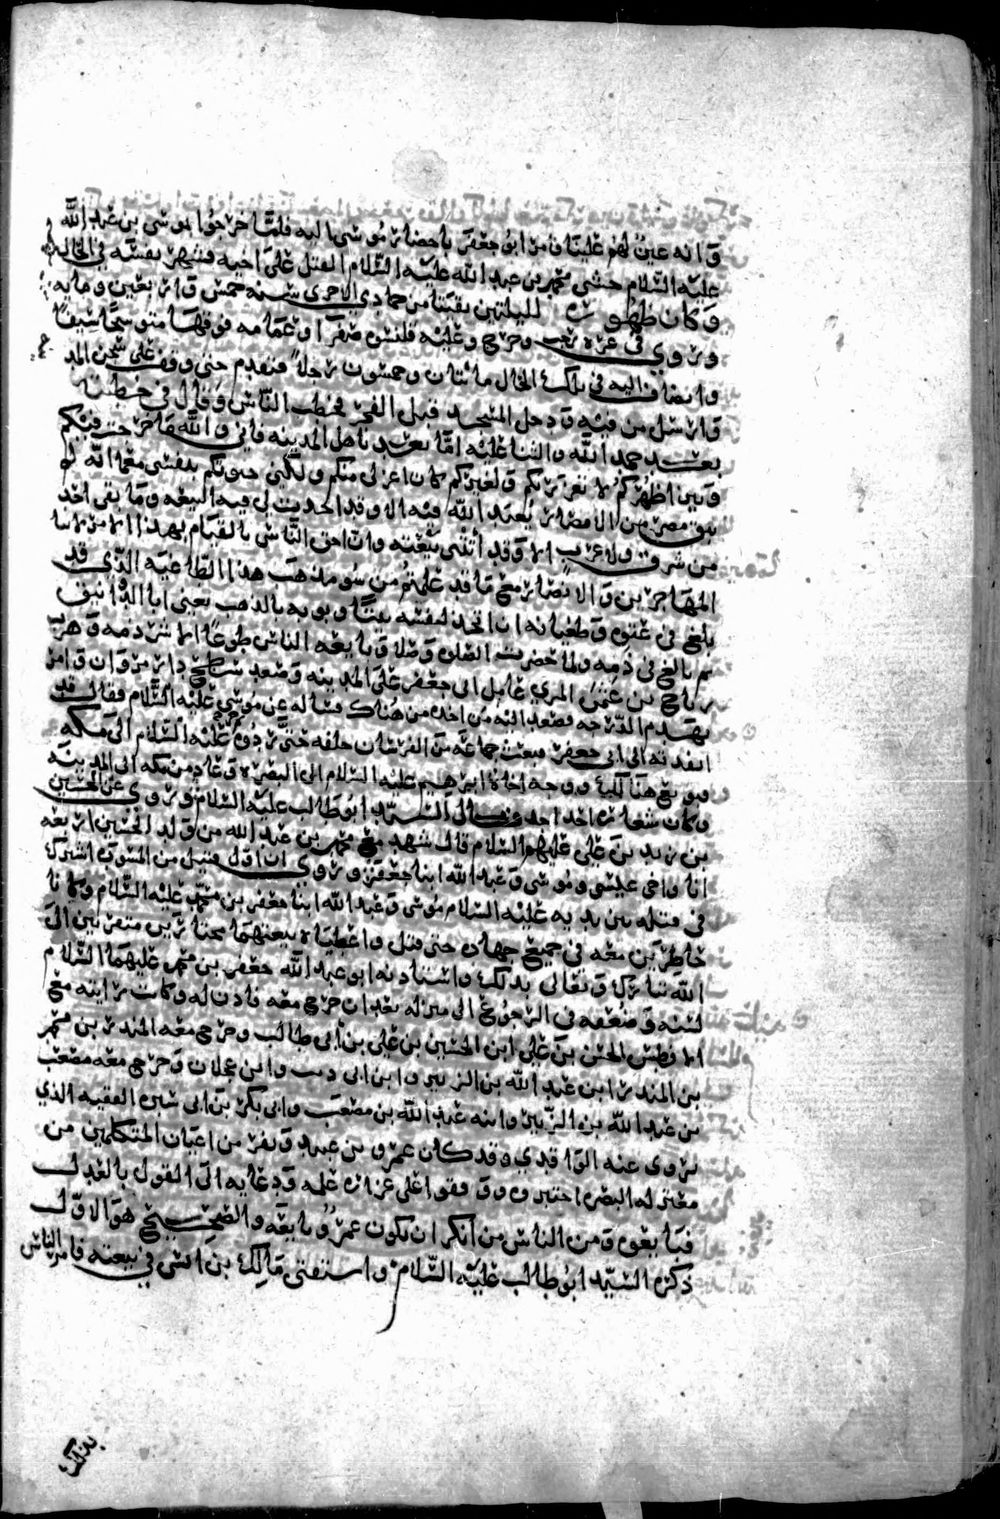 وانه عين لهم علينا فامر ابو جعفر باحضار موسى اليه فلما خرجوا بموسى بن عبد الله
عليه السلام خشي محمد بن عبد الله عليه السلام القتل على اخيه فشهر نفسه في الحال
وكان ظهوره لليلتين بقيتا من جمادي الاخرى سنه خمس واربعين ومايه
وروي في غره رجب وخرج وعليه قلنسوه صفرا وعمامه فوقها متوشحا سيفا
وانضاف اليه في تلك الحال مائتان وخمسون رجلا فتقدم حتى وقف على سجن المد
وارسل من فيه ودخل المسجد قبل الفجر فخطب الناس وقال في خطبته
بعد حمد الله والثنا عليه اما بعد ياهل المدينه فاني والله ما خرجت فيكم
وبين اظهركم لا تعزز بكم ولغيركم كان اعز لي منكم ولكني حبوتكم بنفسي مع انه لم
يبق مصر من الامصار يعبد الله فيه الا وقد اخذت لي فيه البيعه وما بقي احد
من شرق ولا غرب الا وقد اتتني بيعته وان احق الناس بالقيام بهذا الامر لابنا
المهاجرين والانصار مع ما قد علمتم من سوء مذهب هذا الطاغيه الذي قد
بلغ في عتوه وطغيانه ان اتخذ لنفسه بيتا وبوبه بالذهب يعني ابا الدوانيق
ثم بالغ في ذمه ولما حضرت الصلوه وصلا وبايعه الناس طوعا الا شرذمه وهرب
رياح بن عثمن المري عامل ابي جعفر على المدينه وصعد سطح دار مروان وامر
بهدم الدرجه فصعد اليه من اخذه من هناك فساله عن موسى عليه السلام فقال قد
انفذته الى ابي جعفر فبعث جماعه من الفرسان خلفه حتى ردوه عليه السلام الى مكه
وبويع هنالك ووجه اخاه ابرهيم عليه السلام الى البصره وعاد من مكه الى المدينه
وكان شعاره احد احد قال السيد ابو طالب عليه السلام وروي عن الحسين
بن زيد بن علي عليهم السلام قال شهد مع محمد بن عبد الله من ولد الحسين اربعه
انا واخي عيسى وموسى وعبد الله ابنا جعفر وروي ان اول قتيل من المسوده اشترك
في قتله بين يديه عليه السلام موسى وعبد الله ابنا جعفر بن محمد عليه السلام وكانا
حاضرين معه في جميع جهاده حتى قتل واعطياه بيعتهما مختارين متقربين الى
الله تبارك وتعالى بذلك واستاذنه ابو عبد الله جعفر بن محمد عليهما السلام
لسنه وضعفه في الرجوع الى منزله بعد ان خرج معه فاذن له وكانت رايته مع
الافطس الحسن بن علي ابن الحسين بن علي بن ابي طالب وخرج معه المنذر بن محمد
بن المنذر ابن عبد الله بن الزبير وابن ابي ذيب وابن عجلان وخرج معه مصعب
بن عبد الله بن الزبير وابنه عبد الله بن مصعب وابي بكر بن ابي سبره الفقيه الذي
يروي عنه الواقدي وقد كان عمرو بن عبيد ونفر من اعيان المتكلمين من
معتزله البصره اختبروه ووقفوا على غزاره علمه ودعايه الى القول بالعدل
فبايعوه ومن الناس من انكر ان يكون عمرو بايعه والصحيح هو الاول
ذكره السيد ابو طالب عليه السلام واستفتي مالك بن انس في بيعته فامر الناس
بذلك